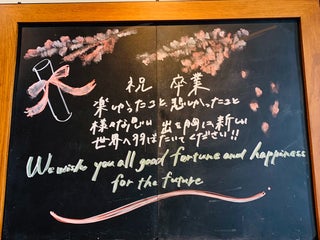 祝 卒業
楽しかったこと 悲しかったこと
様々な思い出を胸に新しい
世界へ羽ばたいてください!!
We wish you all good fortune and happiness
for the future